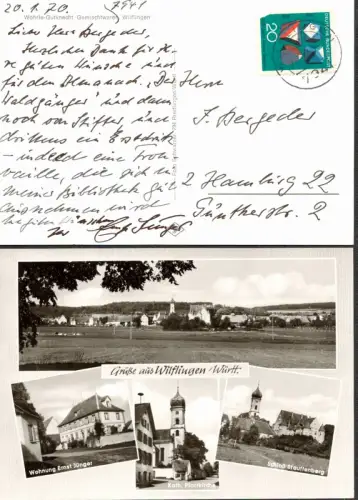 20.1.70.
Wehrle-Gutknecht Gemischtwaren Wilflingen
Lieber Herr Bergeder,
Herzlichen Dank für Ih-
re guten Wünsche und
für den Almanach. „Der
Waldgänger" und dann
noch von Stifter, und
drittens ein Erstdruck
- indeed eine Trou-
vaille, die sich in
meiner Bibliothek gut
ausnehmen wird
20
DEUTSCHE BUNDESPOST
Herrn
J. Bergeder
2 Hamburg 22
Güntherstr. 2
Grüße aus Wilflingen/Württ.
Wohnung Ernst Jünger
Kath. Pfarrkirche
Schloß Stauffenberg